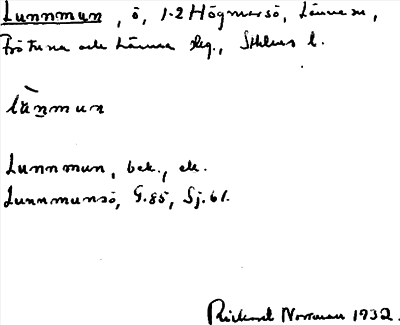 Lunnmun, ö, 1-2 Högmarsö, Länna sn,
Frötuna och Länna slg., Sthlms l.
lùnmun
Lunnmun, bek., ek.
Lunnmunsö, G.85, Sj.61.
Rickard Norrman 1932.